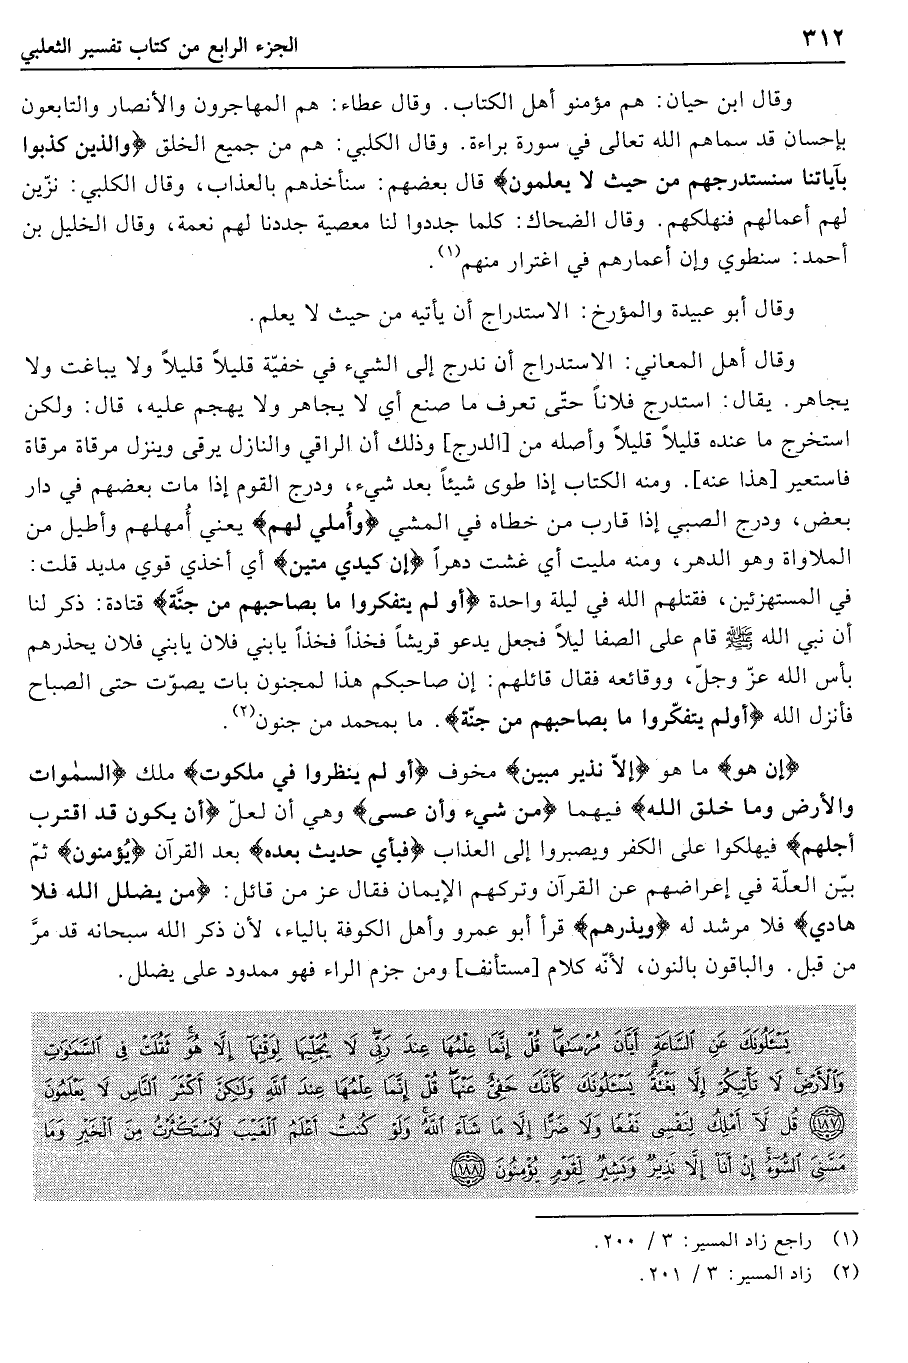 ٣١٢
الجزء الرابع من كتاب تفسير الثعلبي
وقال ابن حيان: هم مؤمنو أهل الكتاب. وقال عطاء: هم المهاجرون والأنصار والتابعون
بإحسان قد سماهم الله تعالى في سورة براءة. وقال الكلبي: هم من جميع الخلق ﴿والذين كذبوا
بآياتنا سنستدرجهم من حيث لا يعلمون﴾ قال بعضهم: سنأخذهم بالعذاب، وقال الكلبي: نزّين
لهم أعمالهم فنهلكهم. وقال الضحاك: كلما جددوا لنا معصية جددنا لهم نعمة، وقال الخليل بن
أحمد: سنطوي وإن أعمارهم في اغترار منهم(١).
وقال أبو عبيدة والمؤرخ: الاستدراج أن يأتيه من حيث لا يعلم.
وقال أهل المعاني: الاستدراج أن ندرج إلى الشيء في خفيّة قليلاً قليلاً ولا يباغت ولا
يجاهر. يقال: استدرج فلاناً حتّى تعرف ما صنع أي لا يجاهر ولا يهجم عليه، قال: ولكن
استخرج ما عنده قليلاً قليلاً وأصله من [الدرج] وذلك أن الراقي والنازل يرقى وينزل مرقاة مرقاة
فاستعير [هذا عنه]. ومنه الكتاب إذا طوى شيئاً بعد شيء، ودرج القوم إذا مات بعضهم في دار
بعض، ودرج الصبي إذا قارب من خطاه في المشي ﴿وأُملي لهم﴾ يعني أُمهلهم وأطيل من
الملاواة وهو الدهر، ومنه مليت أي غشت دهراً ﴿إن كيدي متين﴾ أي أخذي قوي مديد قلت:
في المستهزئين، فقتلهم الله في ليلة واحدة ﴿أو لم يتفكروا ما بصاحبهم من جنَّة﴾ قتادة: ذكر لنا
أن نبي الله ﷺ قام على الصفا ليلاً فجعل يدعو قريشاً فخذاً فخذاً يابني فلان يابني فلان يحذرهم
بأس الله عزّ وجلّ، ووقائعه فقال قائلهم: إن صاحبكم هذا لمجنون بات يصوّت حتى الصباح
فأنزل الله ﴿أولم يتفكّروا ما بصاحبهم من جنّة﴾. ما بمحمد من جنون(٢).
﴿إن هو﴾ ما هو ﴿إلاّ نذير مبين﴾ مخوف ﴿أو لم ينظروا في ملكوت﴾ ملك ﴿السمٰوات
والأرض وما خلق الله﴾ فيهما ﴿من شيء وأن عسى﴾ وهي أن لعلّ ﴿أن يكون قد اقترب
أجلهم﴾ فيهلكوا على الكفر ويصبروا إلى العذاب ﴿فبأي حديث بعده﴾ بعد القرآن ﴿يُؤمنون﴾ ثمّ
بيّن العلّة في إعراضهم عن القرآن وتركهم الإيمان فقال عز من قائل: ﴿من يضلل الله فلا
هادي﴾ فلا مرشد له ﴿ويذرهم﴾ قرأ أبو عمرو وأهل الكوفة بالياء، لأن ذكر الله سبحانه قد مرَّ
من قبل. والباقون بالنون، لأنّه كلام [مستأنف] ومن جزم الراء فهو ممدود على يضلل.
يَسْـَٔلُونَكَ عَنِ ٱلسَّاعَةِ أَيَّانَ مُرْسَىٰهَا قُلْ إِنَّمَا عِلْمُهَا عِندَ رَبِّى لَا يُجَلِّيهَا لِوَقْتِهَا إِلَّا هُوَ ثَقُلَتْ فِى ٱلسَّمَٰوَٰتِ
وَٱلْأَرْضِ لَا تَأْتِيكُمْ إِلَّا بَغْتَةً يَسْـَٔلُونَكَ كَأَنَّكَ حَفِىٌّ عَنْهَا قُلْ إِنَّمَا عِلْمُهَا عِندَ ٱللَّهِ وَلَٰكِنَّ أَكْثَرَ ٱلنَّاسِ لَا يَعْلَمُونَ
﴿١٨٧﴾ قُل لَّآ أَمْلِكُ لِنَفْسِى نَفْعًا وَلَا ضَرًّا إِلَّا مَا شَآءَ ٱللَّهُ وَلَوْ كُنتُ أَعْلَمُ ٱلْغَيْبَ لَٱسْتَكْثَرْتُ مِنَ ٱلْخَيْرِ وَمَا
مَسَّنِىَ ٱلسُّوٓءُ إِنْ أَنَا۠ إِلَّا نَذِيرٌ وَبَشِيرٌ لِّقَوْمٍ يُؤْمِنُونَ ﴿١٨٨﴾
(١) راجع زاد المسير: ٣ / ٢٠٠.
(٢) زاد المسير: ٣ / ٢٠١.